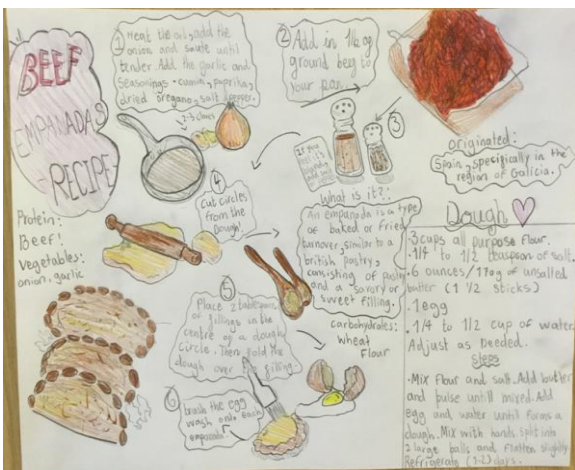 BEEF
EMPANADAS
RECIPE
1 Heat the oil, add the
onion and saute until
tender. Add the garlic and
seasonings - cumin, paprika,
dried oregano, salt, pepper.
2-3 cloves
2 Add in
ground
your pan.
3
originated:
Spain, specifically in the
region of Galicia.
4
cut circles
from the
Dough.
Protein:
Beef!
Vegetables:
onion, garlic
What is it?:
An empanada is a type
of baked or fried
turnover, similar to a
british pastry,
consisting of pastry
and a savory or
sweet filling.
carbohydrates:
Wheat
Flour
5
Place 2 tablespoons
of fillings in the
centre of a dough
circle. Then fold the
dough over the filling.
6
brush the egg
wash onto each
empanada.
Dough
3 cups all purpose flour.
1/4 to 1/2 teaspoon of salt.
6 ounces/170g of unsalted
butter (1 1/2 sticks)
1 egg
1/4 to 1/2 cup of water.
Adjust as needed.
Steps
·Mix flour and salt. Add butter
and pulse untill mixed. Add
egg and water until forms a
dough. Mix with hands. split into
2 large balls and flatten slightly.
Refrigerate (1-2) days.